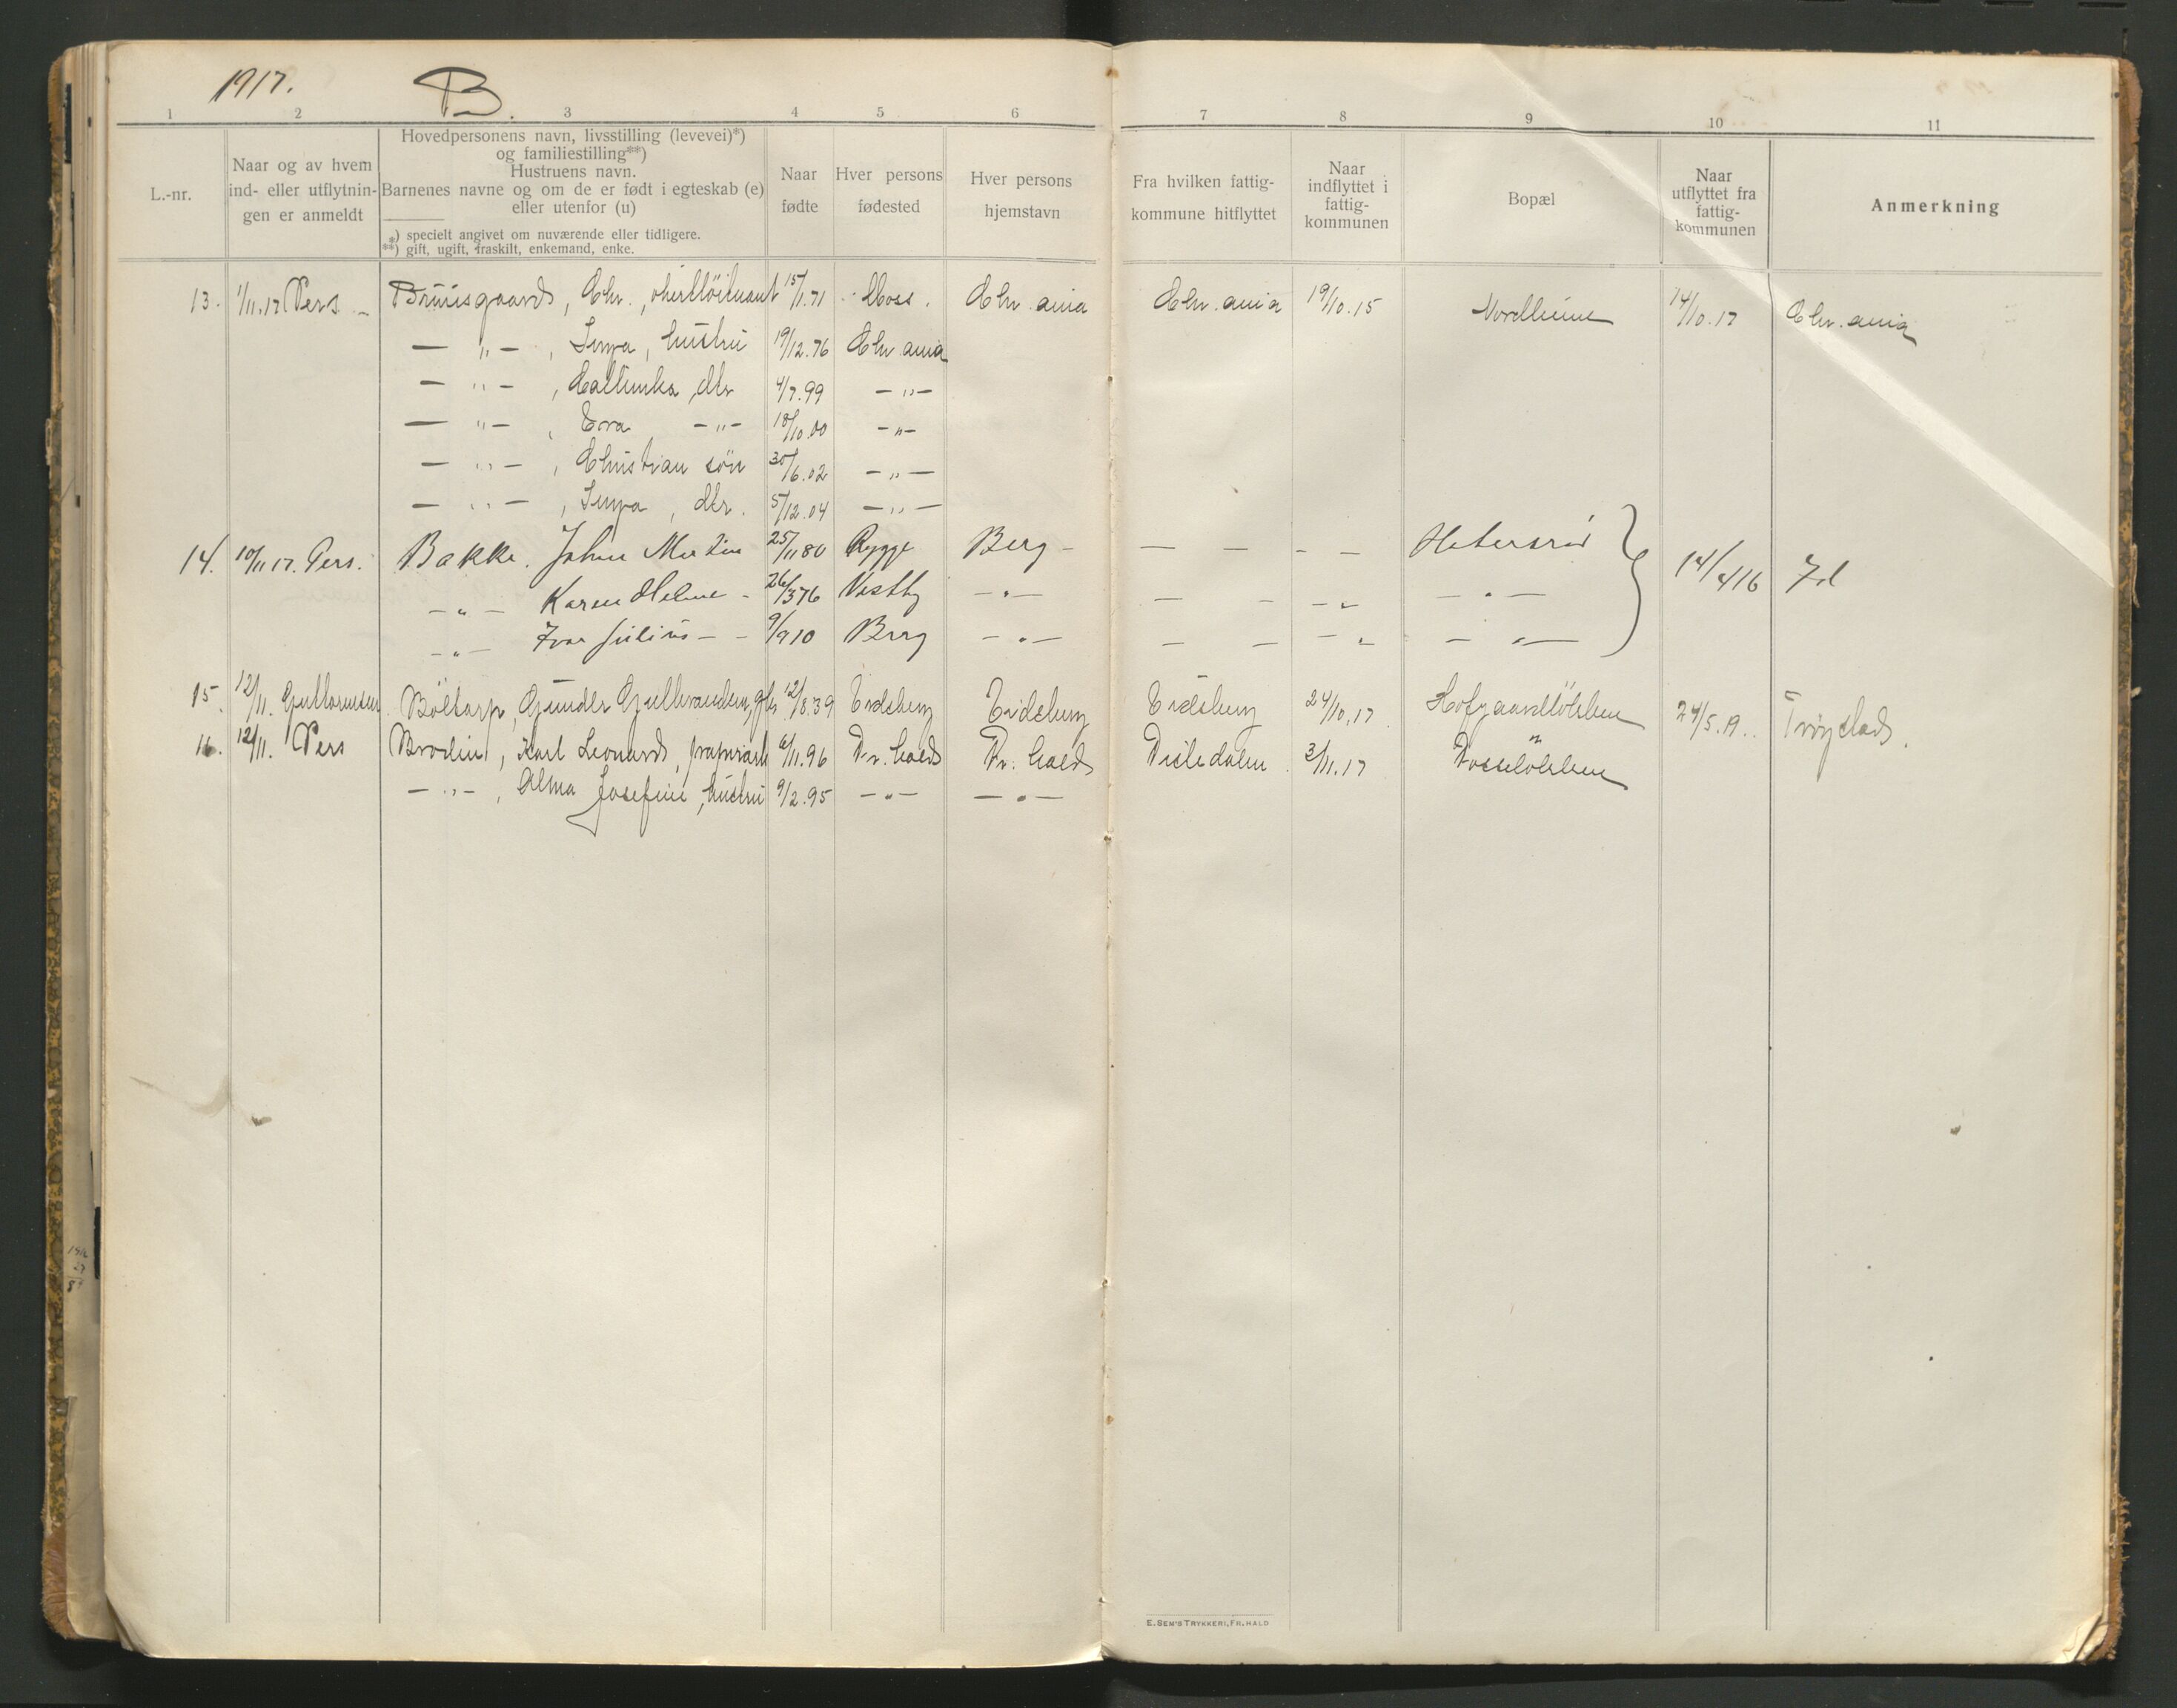 1917. B.
1 2 3 4 5 6 7 8 9 10 11
L.-nr.
Naar og av hvem
ind- eller utflytnin-
gen er anmeldt
Hovedpersonens navn, livsstilling (levevei)*)
og familiestilling**)
Hustruens navn.
Barnenes navne og om de er født i egteskab (e)
eller utenfor (u)
*) specielt angivet om nuværende eller tidligere.
**) gift, ugift, fraskilt, enkemand, enke.
Naar
fødte
Hver persons
fødested
Hver persons
hjemstavn
Fra hvilken fattig-
kommune hitflyttet
Naar
indflyttet i
fattig-
kommunen
Bopæl
Naar
utflyttet fra
fattig-
kommunen
Anmerkning
13. 1/11.17 Pers - Bruusgaard, Chr., oberstløitnant 15/1.71 Moss. Chr.ania Chr.ania 19/10.15 14/10.17 Chr.ania
— " — , hustru 19/12.76 Chr.ania
— " — , dtr 4/7.99 — " —
— " — , Eva — " — 18/10.00 — " —
— " — , Christian søn 30/6.02 — " —
— " — , dtr. 5/12.04 — " —
14. 10/11 17. Pers. Bakke. Johan Martin 25/11 80 Rygge Berg — — — — — 14/4 16 Id
— " — Karen Helene - 26/3 76 Vestby — " — — — — " — " —
— " — Ivar Julius — - 9/9 10 Berg — " — — — — " — " —
15. 12/11. Guttormsen Böltorp, Gunder 12/8.39 Eidsberg Eidsberg Eidsberg 24/10.17 Hofgaardløkken 24/5.19. Trøgstad.
16. 12/11. Pers Brodin, Karl Leonard, 6/11.96 Fr. hald Fr. hald Tistedalen 3/11.17
— " — , Alma Josefine, hustru 9/2.95 — " — — " —
E. SEM'S TRYKKERI, FR. HALD